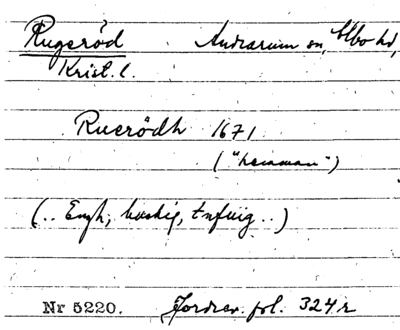 Rugeröd Andrarum sn, Albo hd,
Krist. l.
Rucrödh 1671
("hemman")
(.. Engh, buskig, tufvig ..)
Nr 5220. Jordrev. fol. 324 r